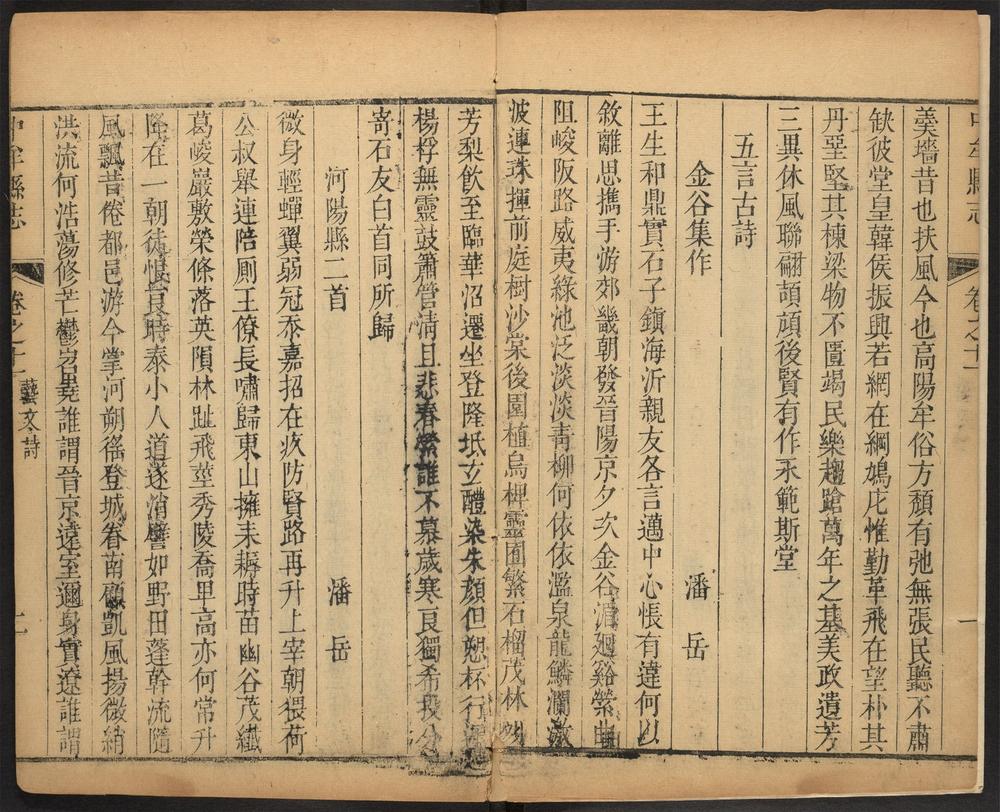 中牟縣志
卷之十一
一
羙墻昔也扶風今也高陽牟俗方頹有弛無張民聽不肅
缺彼堂皇韓侯振興若網在綱鳩庀惟勤革飛在望朴其
丹堊堅其棟梁物不匱竭民樂趨蹌萬年之基美政遺芳
三異休風聯翩頡頏後賢有作永範斯堂
五言古詩
金谷集作
潘岳
王生和鼎實石子鎮海沂親友各言邁中心悵有違何以
敘離思攜手游郊畿朝發晉陽京夕次金谷湄廻谿縈曲
阻峻阪路威夷綠池泛淡淡青柳何依依濫泉龍鱗瀾激
波連珠揮前庭樹沙棠後園植烏椑靈囿繁石榴茂林列
芳梨飲至臨華沼遷坐登隆坻玄醴染朱顏但愬杯行遲
楊桴無靈鼓簫管淸且悲春榮誰不慕歲寒良獨希投分
寄石友白首同所歸
河陽縣二首
潘岳
微身輕蟬翼弱冠忝嘉招在疚防賢路再升上宰朝猥荷
公叔舉連陪厠王僚長嘯歸東山擁耒耨時苗幽谷茂纖
葛峻巖敷榮條落英隕林趾飛莖秀陵喬里高亦何常升
降在一朝徒恨良時泰小人道遂消譬如野田蓬幹流隨
風飄昔倦都邑游今掌河朔徭登城眷南顧凱風揚微綃
洪流何浩蕩修芒鬱岧嶤誰謂晉京遠室邇身實遼誰謂
中牟縣志
卷之十一
藝文詩
二